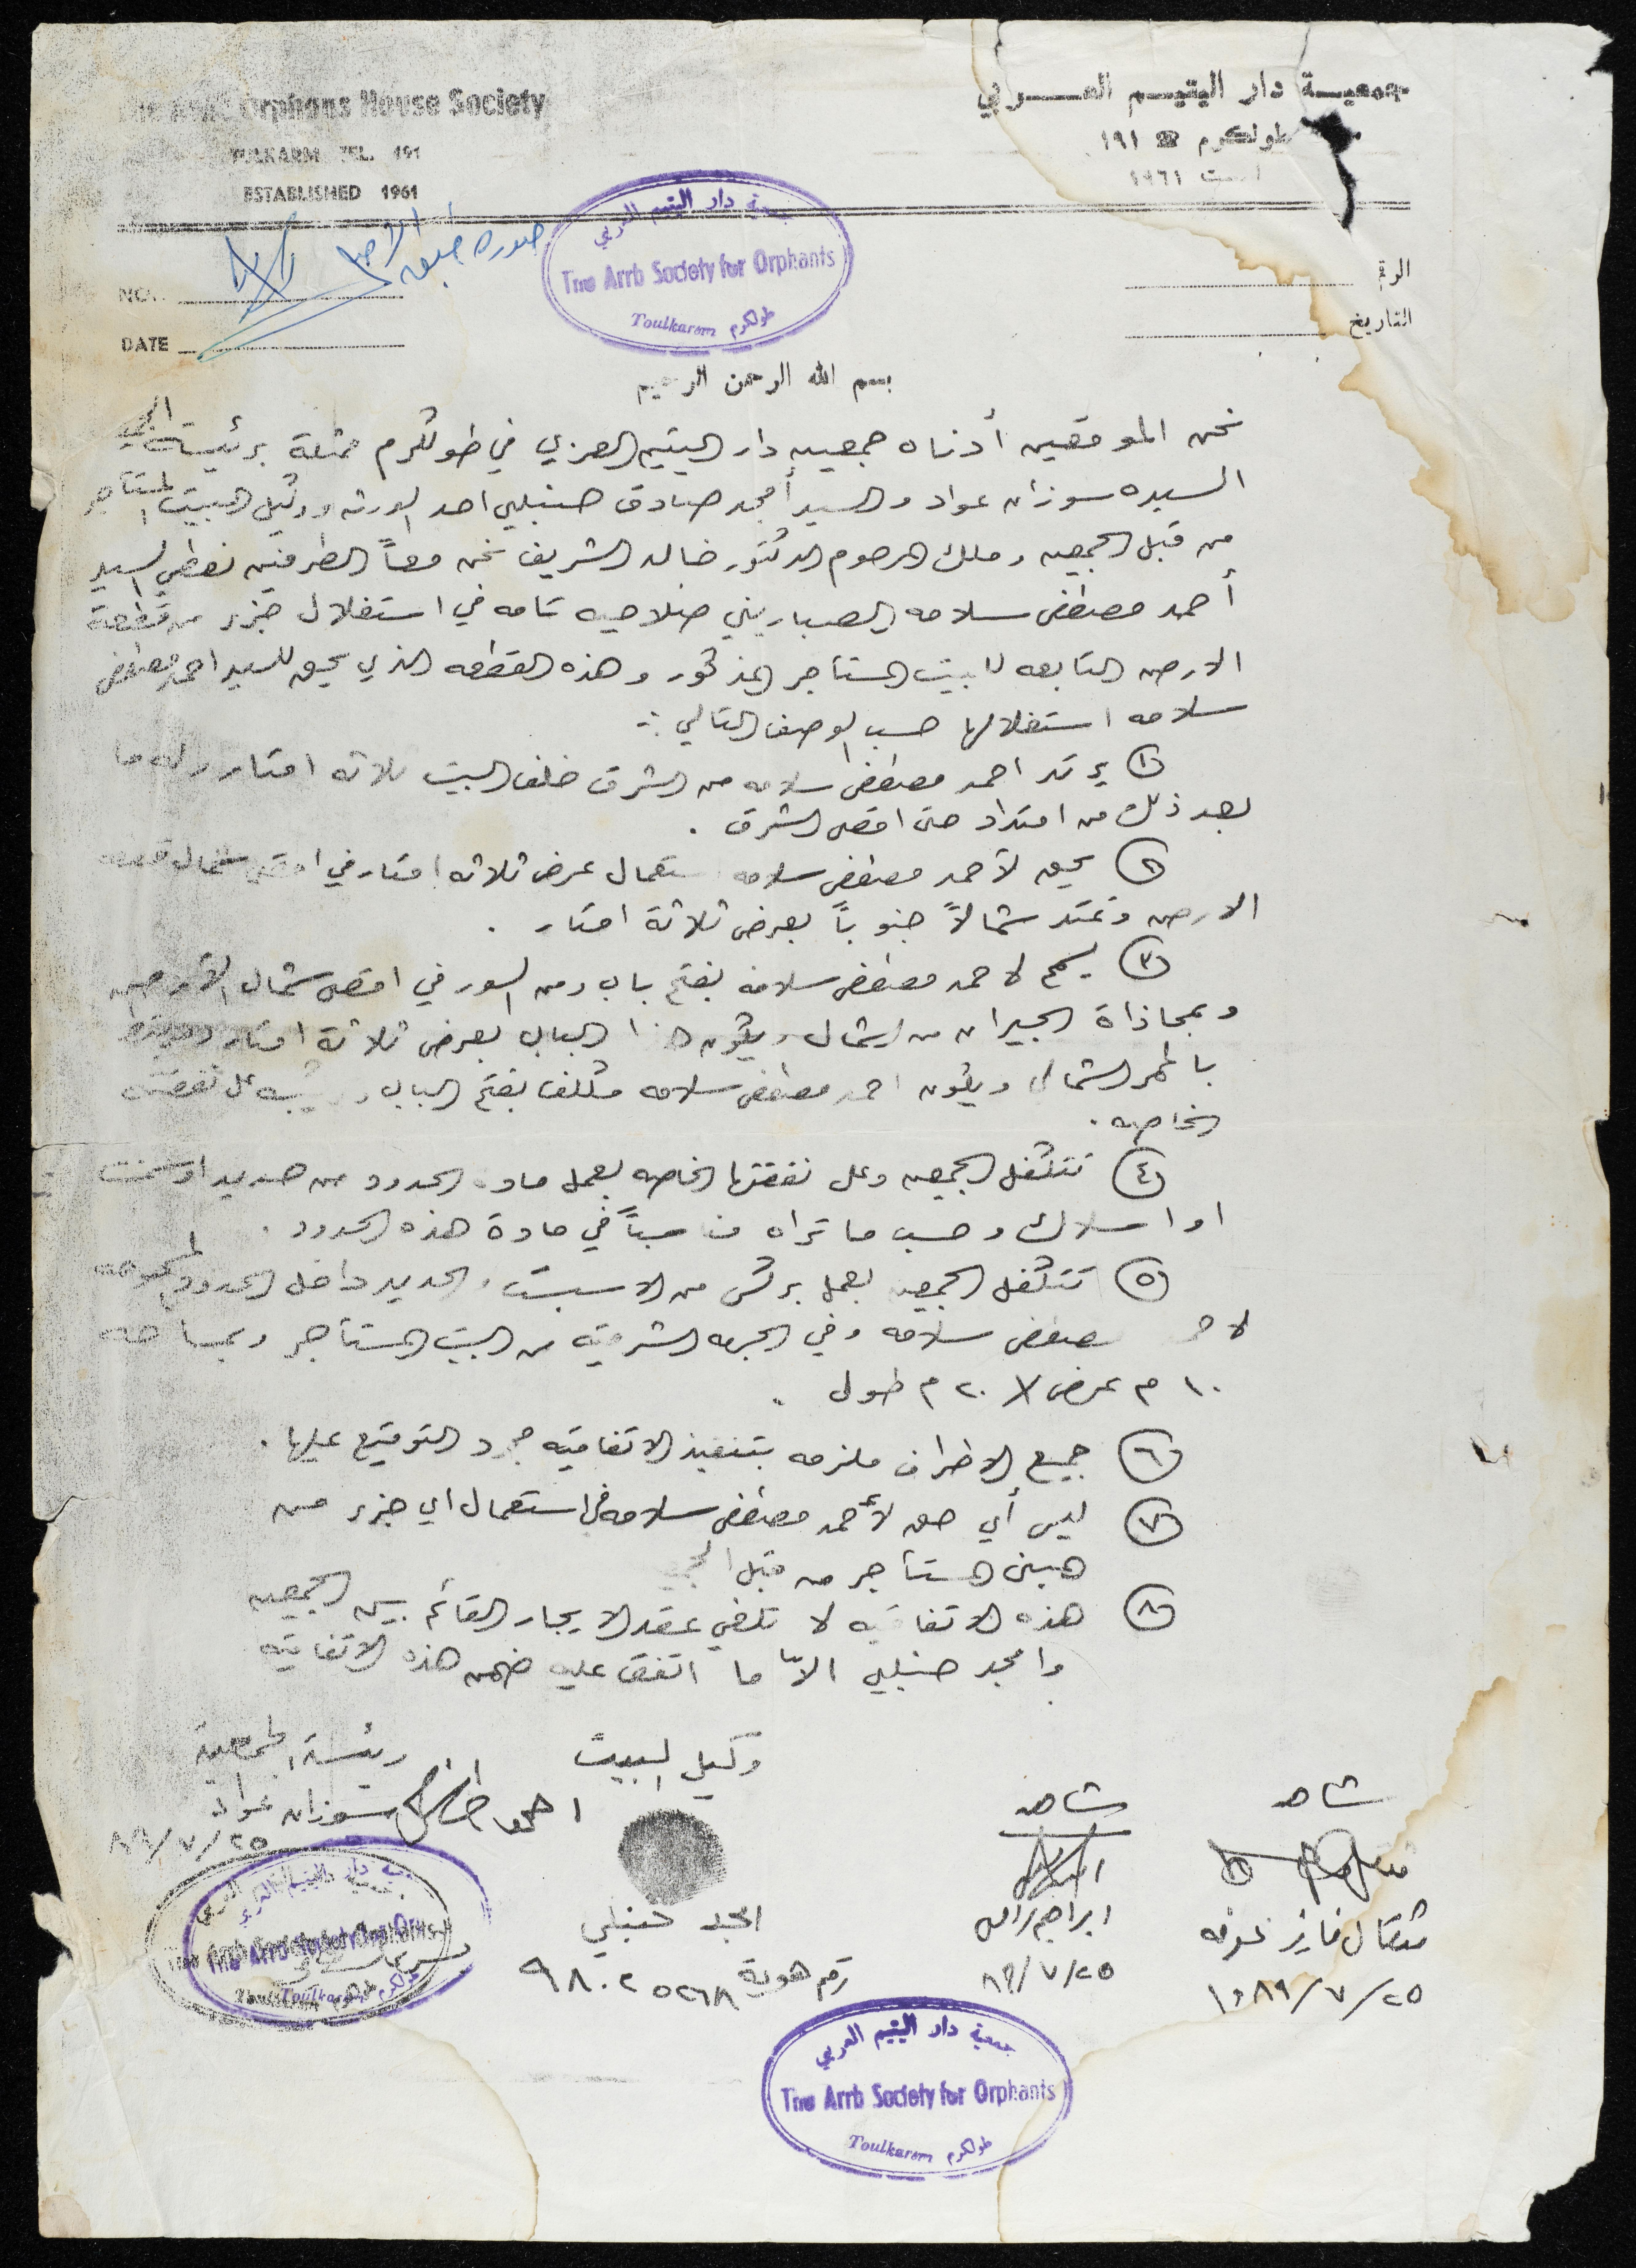 جمعيـــة دار اليتيـــم العـــربي
طولكرم ☎ ١٩١
١٩٦١
Orphans House Society
TULKARM TEL. 191
ESTABLISHED 1961
صورة طبق الاصل
جمعية دار اليتيم العربي
The Arrb Society for Orphants
Toulkarem طولكرم
الرقم
التاريخ
NO.
DATE
بسم الله الرحمن الرحيم
نحن الموقعين أدناه جمعيه دار اليتيم العربي في طولكرم ممثلة برئيسة
السيده سوزان عواد والسيد أمجد صادق حنبلي احد الورثه ووكيل البيت المستأجر
من قبل الجمعيه وملك المرحوم الدكتور خالد الشريف نحن معاً الطرفين نعطي السيد
أحمد مصطفى سلامه الصباريني صلاحيه تامه في استغلال جزء من قطعة
الارض التابعه للبيت المستأجر المذكور وهذه القطعه الذي يحق للسيد احمد مصطفى
سلامه استغلالها حسب الوصف التالي :-
١ يرتد احمد مصطفى سلامه من الشرق خلف البيت ثلاثه امتار وله ما
بعد ذلك من امتداد حتى اقصى الشرق .
٢ يحق لأحمد مصطفى سلامه استعمال عرض ثلاثه امتار في اقصى شمال قطعه
الارض وتمتد شمالاً جنوباً بعرض ثلاثة امتار .
٣ يسمح لاحمد مصطفى سلامه بفتح باب ومن السور في اقصى شمال الأرض
وبمحاذاة الجيران من الشمال ويكون هذا الباب بعرض ثلاثة امتار
بالممر الشمالي ويكون احمد مصطفى سلامه مكلف بفتح الباب وتركيبه على نفقته
الخاصه .
٤ تتكفل الجمعيه وعلى نفقتها الخاصه بعمل ماده الحدود من حديد او سمنت
او اسلاك وحسب ما تراه مناسباً في مادة هذه الحدود .
٥ تتكفل الجمعيه بعمل بركس من الاسبست والحديد داخل الحدود الممنوحه
لاحمد مصطفى سلامه وفي الجهه الشرقيه من البيت المستأجر وبمساحه
١٠ م عرض X ٢٠ م طول .
٦ جميع الاطراف ملزمه بتنفيذ الاتفاقيه بمجرد التوقيع عليها .
٧ ليس أي حق لأحمد مصطفى سلامه في استعمال اي جزء من
المبنى المستأجر من قبل
٨ هذه الاتفاقيه لا تلغي عقد الايجار القائم بين الجمعيه
وامجد حنبلي الاّ ما اتفق عليه ضمن هذه الاتفاقيه
شاهد
شاهد
وكيل البيت
رئيسة الجمعية
سوزان عواد
٨٩/٧/٢٥
مثقال فايز عوفه
١٩٨٩/٧/٢٥
ابراهيم
٨٩/٧/٢٥
امجد حنبلي
رقم هوية ٩٨٠٢٥٢٦٨
جمعية دار اليتيم العربي
The Arrb Society for Orphants
Toulkarem طولكرم
جمعية دار اليتيم العربي
The Arrb Society for Orphants
Toulkarem طولكرم